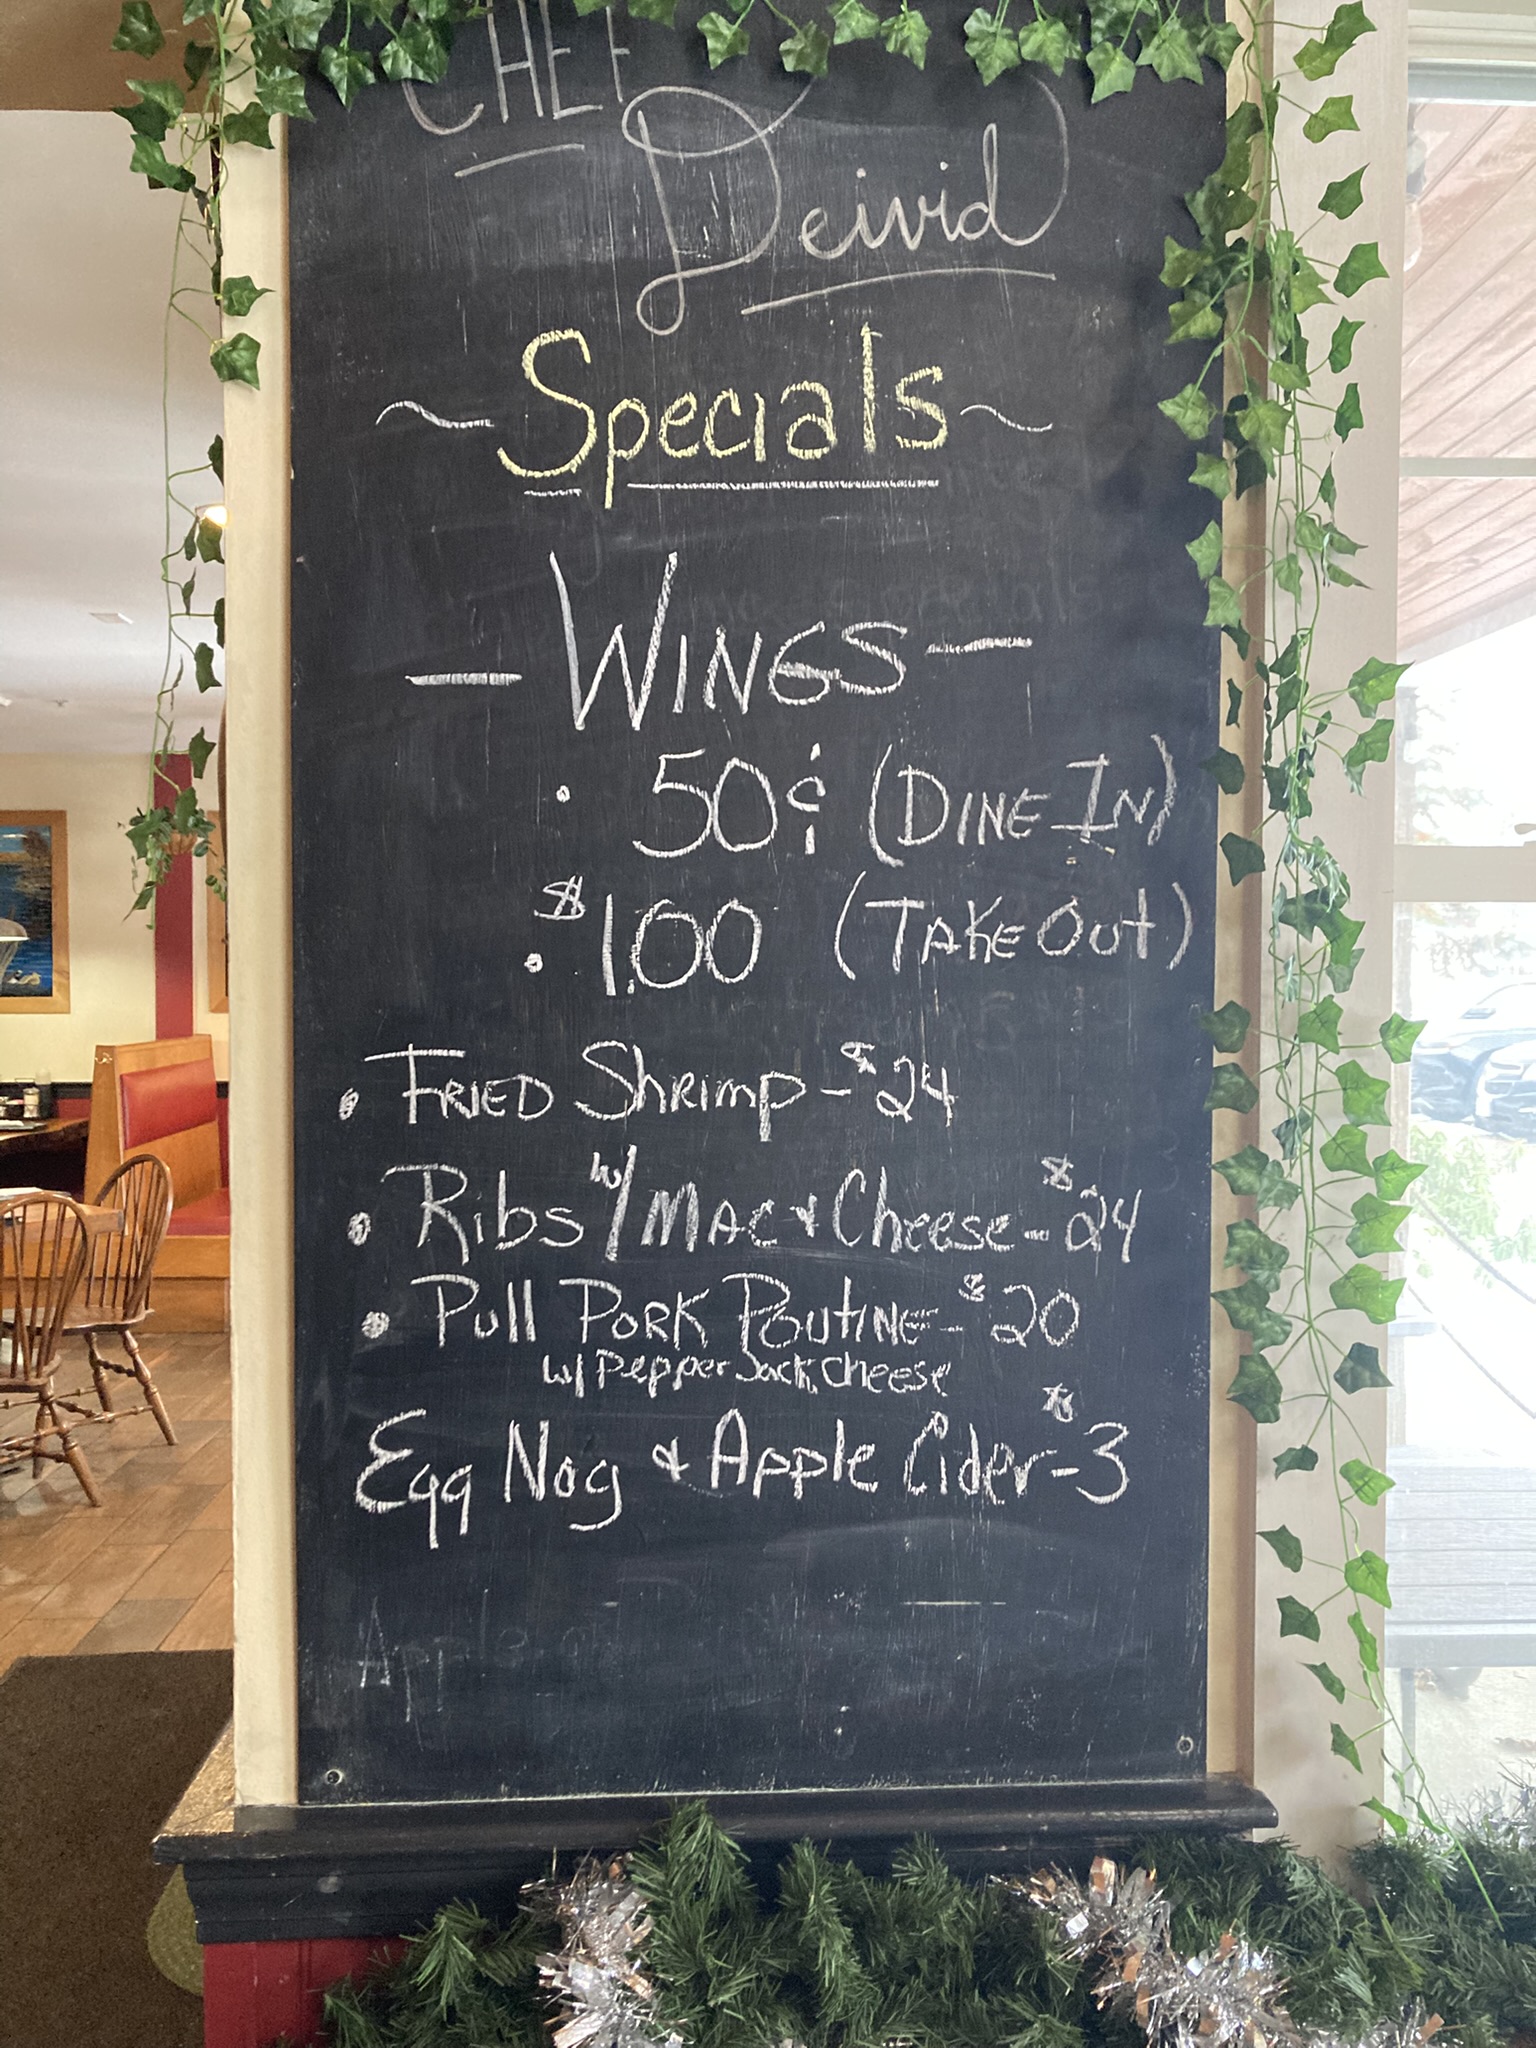 CHEF
Deivid
~Specials~
—WINGS—
• 50¢ (DINE IN)
• $1.00 (TAKE OUT)
• FRIED Shrimp - $24
• Ribs w/ MAC & Cheese - $24
• Pull PORK POUTINE - $20
w/ Pepper Jack Cheese
Egg Nog & Apple Cider - $3
Apple